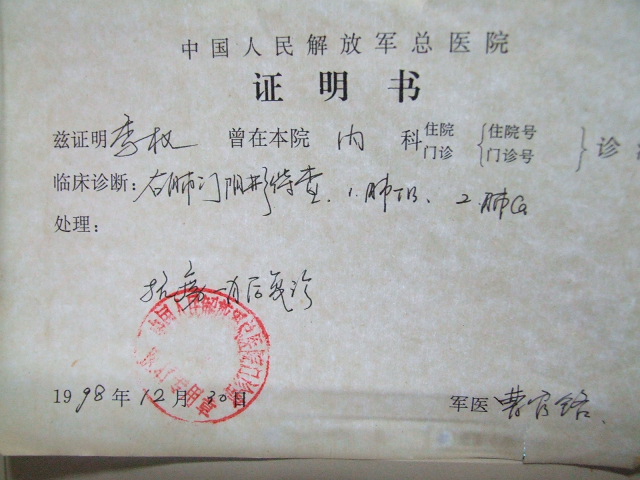 中国人民解放军总医院
证明书
兹证明 李权 曾在本院 内 科 住院 门诊 { 住院号 门诊号 } 诊
临床诊断: 右肺门阴影待查. 1.肺TB、 2.肺Ca
处理:
抗痨一月后复诊
1998年12月30日 军医